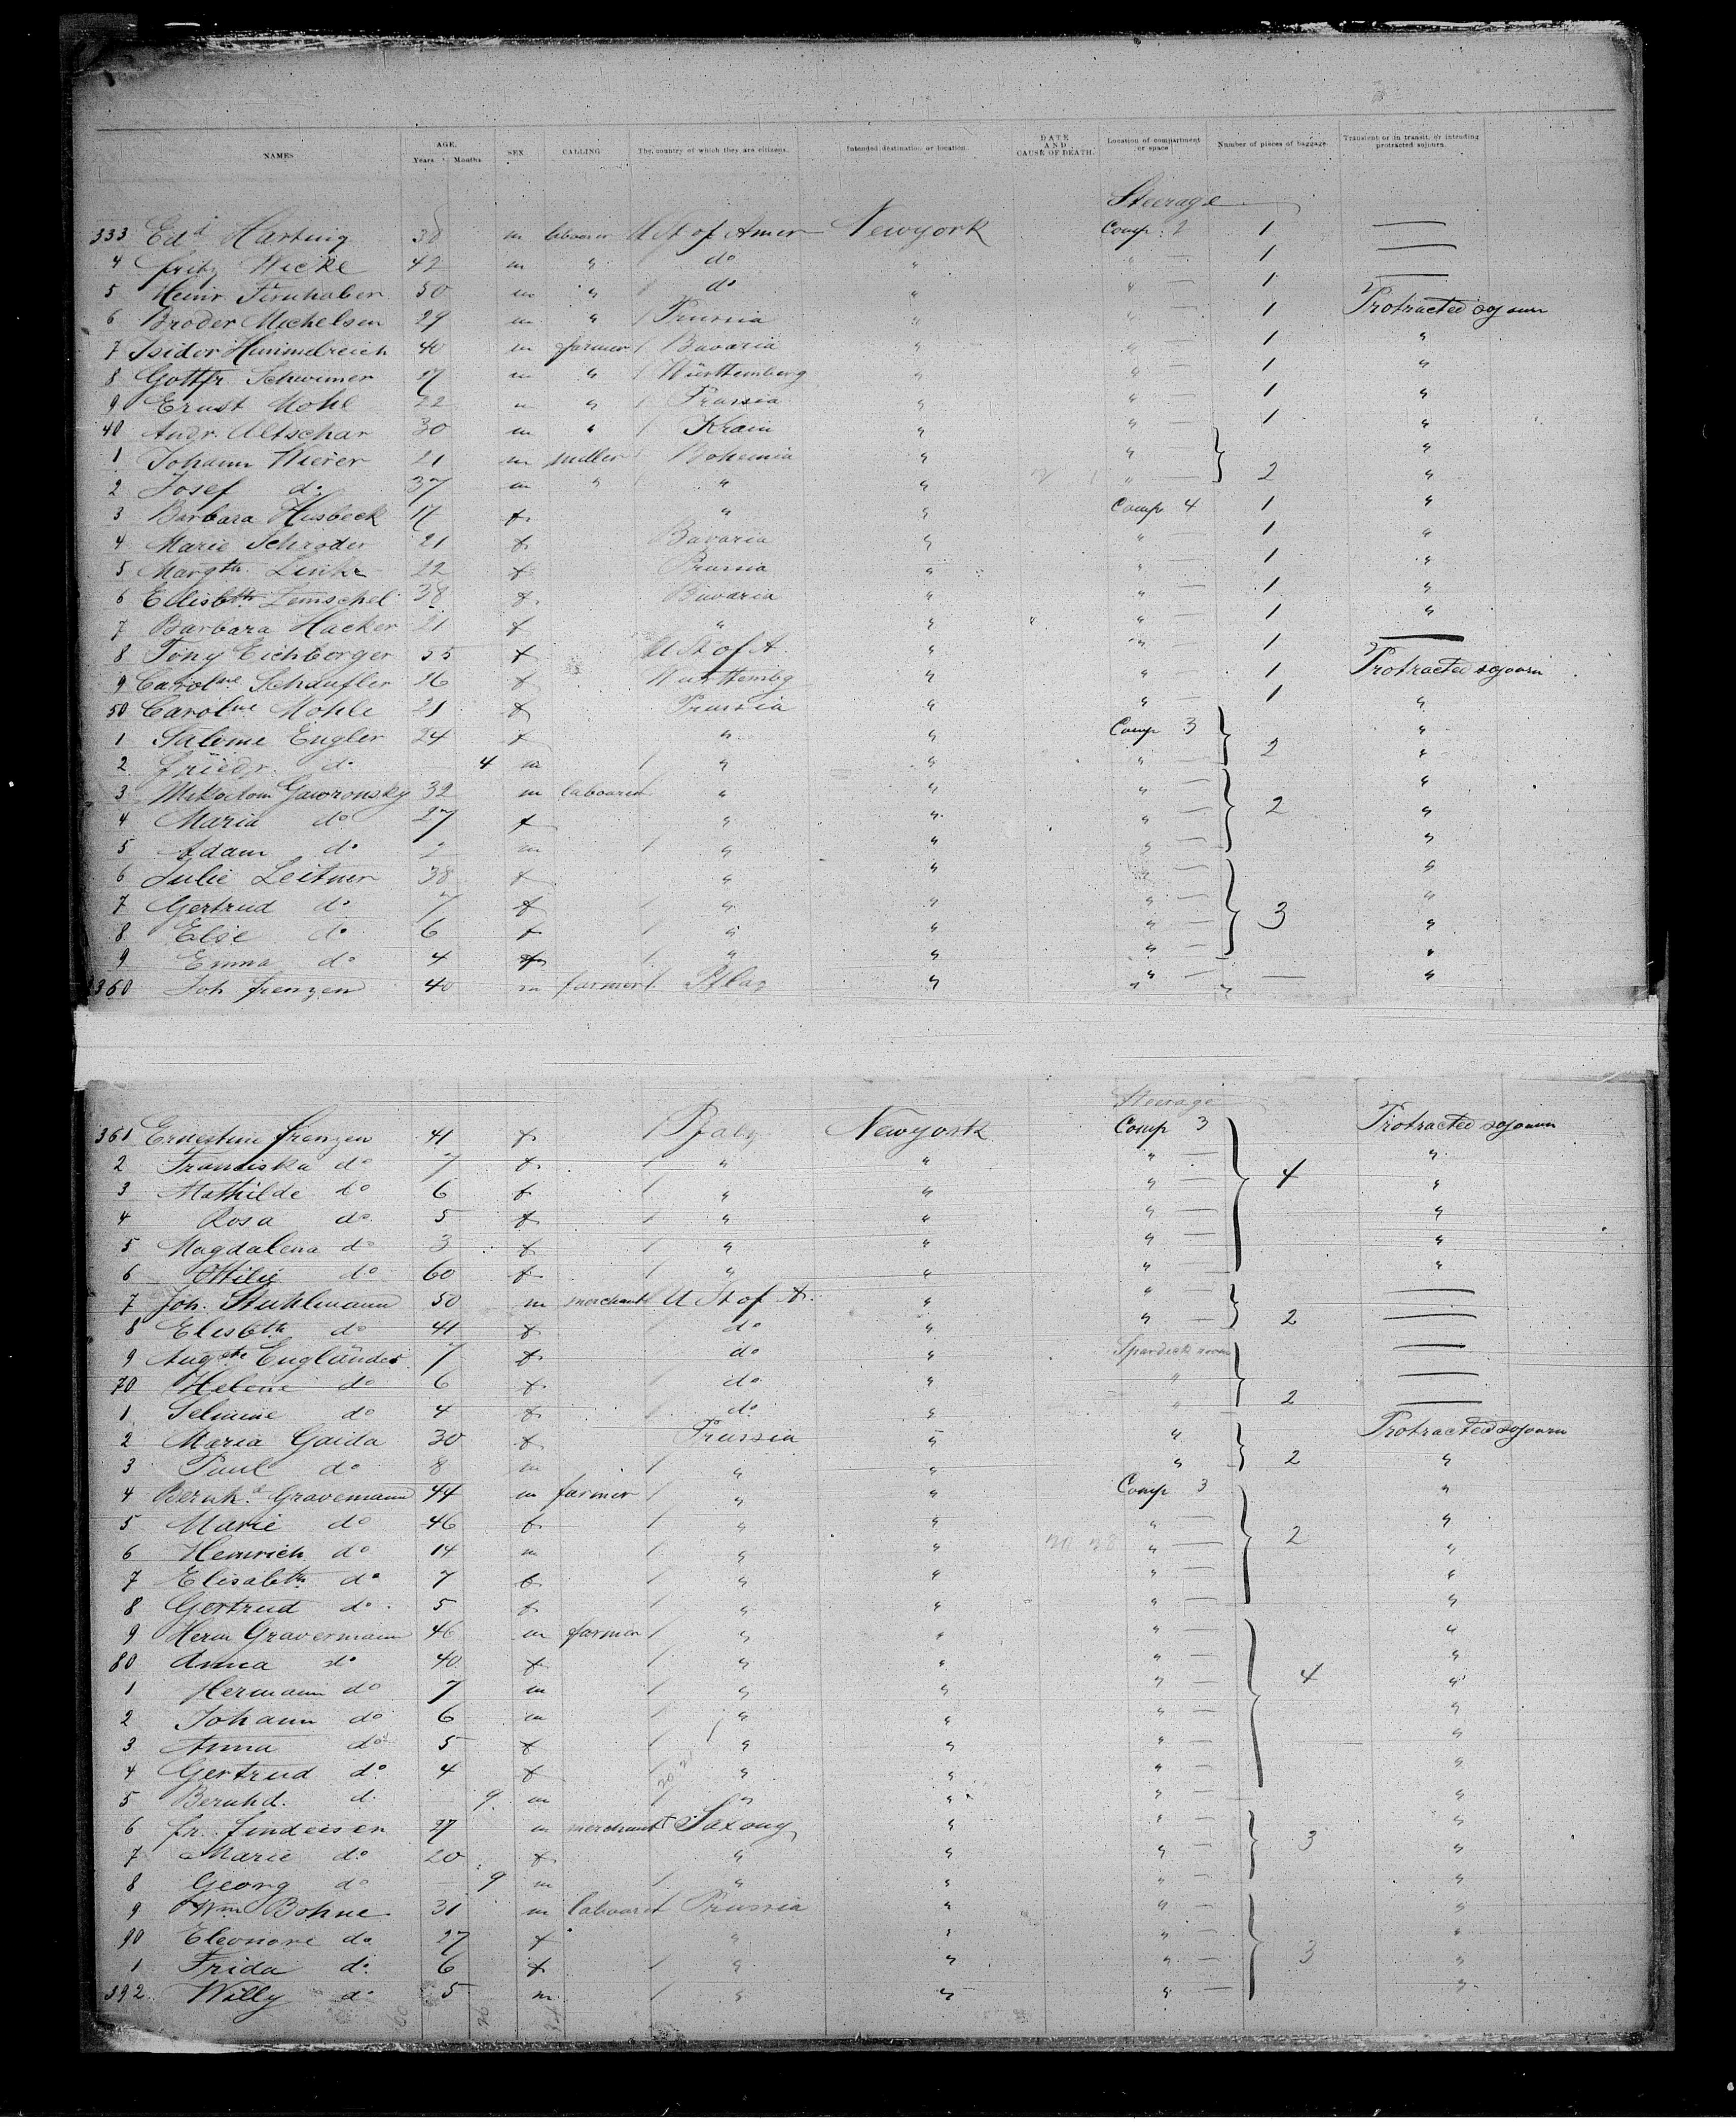 NAMES AGE. Years. Months SEX CALLING The country of which they are citizens. Intended destination or location DATE AND CAUSE OF DEATH. Location of compartment or space Number of pieces of baggage. Transient or in transit, or intending protracted sojourn.
Steerage
333 Edd Hartwig 38 m labourer U St of Amer Newyork Comp. 2 1 —
4 fritz Wicke 42 m " do " " — 1 —
5 Heinr. Fernhaber 50 m " do " " — 1 —
6 Broder Michelsen 29 m " Prussia " " — 1 Protracted sojourn
7 Isidor Himmelreich 40 m farmer Bavaria " " — 1 "
8 Gottfr. Schwimer 27 m " Württemberg " " — 1 "
9 Ernst Mohl 22 m " Prussia " " — 1 "
40 Andr. Altschar 30 m " Krain " " — 1 "
1 Johann Wierer 21 m miller Bohemia " " "
2 Josef do 37 m " " " " — 2 "
3 Barbara Husbeck 17 f " " Comp 4 1 "
4 Marie Schroder 21 f Bavaria " " — 1 "
5 Margth. Linke 22 f Prussia " " — 1 "
6 Elisbth Lemschel 38 f Bavaria " " — 1 "
7 Barbara Hacker 21 f " " " — 1 "
8 Tony Eichberger 55 f U St of A " " — 1 —
9 Carolne Schaufler 26 f Württembg " " — 1 Protracted sojourn
50 Carolne Mohle 21 f Prussia " " — 1 "
1 Salome Engler 24 f " " Comp 3 "
2 friedr. do — 4 m " " " — 2 "
3 Gawronsky 32 m labourer " " " — "
4 Maria do 27 f " " " — 2 "
5 Adam do 2 m " " " — "
6 Julie Leitner 38 f " " " — "
7 Gertrud do 7 f " " " — 3 "
8 Else do 6 f " " " — "
9 Emma do 4 f " " " — "
360 Joh frenzen 40 m farmer Pflaz " " — — "
Steerage
361 Ernestine frenzen 41 f Pfalz Newyork Comp 3 Protracted sojourn
2 Franziska do 7 f " " " — "
3 Mathilde do 6 f " " " — 4 "
4 Rosa do 5 f " " " — "
5 Magdalena do 3 f " " " — "
6 Ottilie do 60 f " " " — "
7 Joh. Stuhlmann 50 m merchant U St of A. " " — —
8 Elisbth do 41 f do " " — 2 —
9 Augste Engländer 7 f do " Spardeck room —
70 Helene do 6 f do " " —
1 Selmine do 4 f do " " 2 —
2 Maria Gaida 30 f Prussia " " Protracted sojourn
3 Paul do 8 m " " " 2 "
4 Bernhd Gravemann 44 m farmer " " Comp 3 "
5 Marie do 46 f " " " — "
6 Heinrich do 14 m " " " — 2 "
7 Elisabeth do 7 f " " " — "
8 Gertrud do 5 f " " " — "
9 Herm Gravermann 46 m farmer " " " — "
80 Anna do 40 f " " " — "
1 Hermann do 7 m " " " — 4 "
2 Johann do 6 m " " " — "
3 Anna do 5 f " " " — "
4 Gertrud do 4 f " " " — "
5 Bernhd. do — 9 m " " " — "
6 fr. findeisen 27 m merchant Saxony " " — "
7 Marie do 20 f " " " — 3 "
8 Georg do — 9 m " " " — "
9 Wm Bohne 31 m labourer Prussia " " — "
90 Eleonore do 27 f " " " — "
1 Frida do 6 f " " " — 3 "
392 Willy do 5 m " " " — "